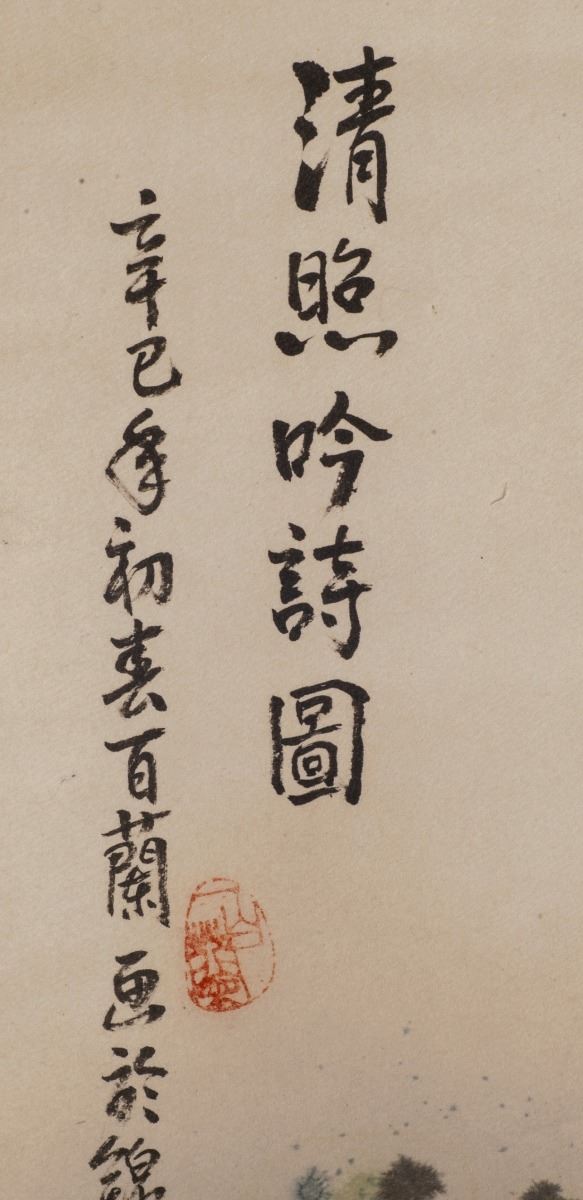 清照吟詩圖
辛巳年初春百蘭画於錦